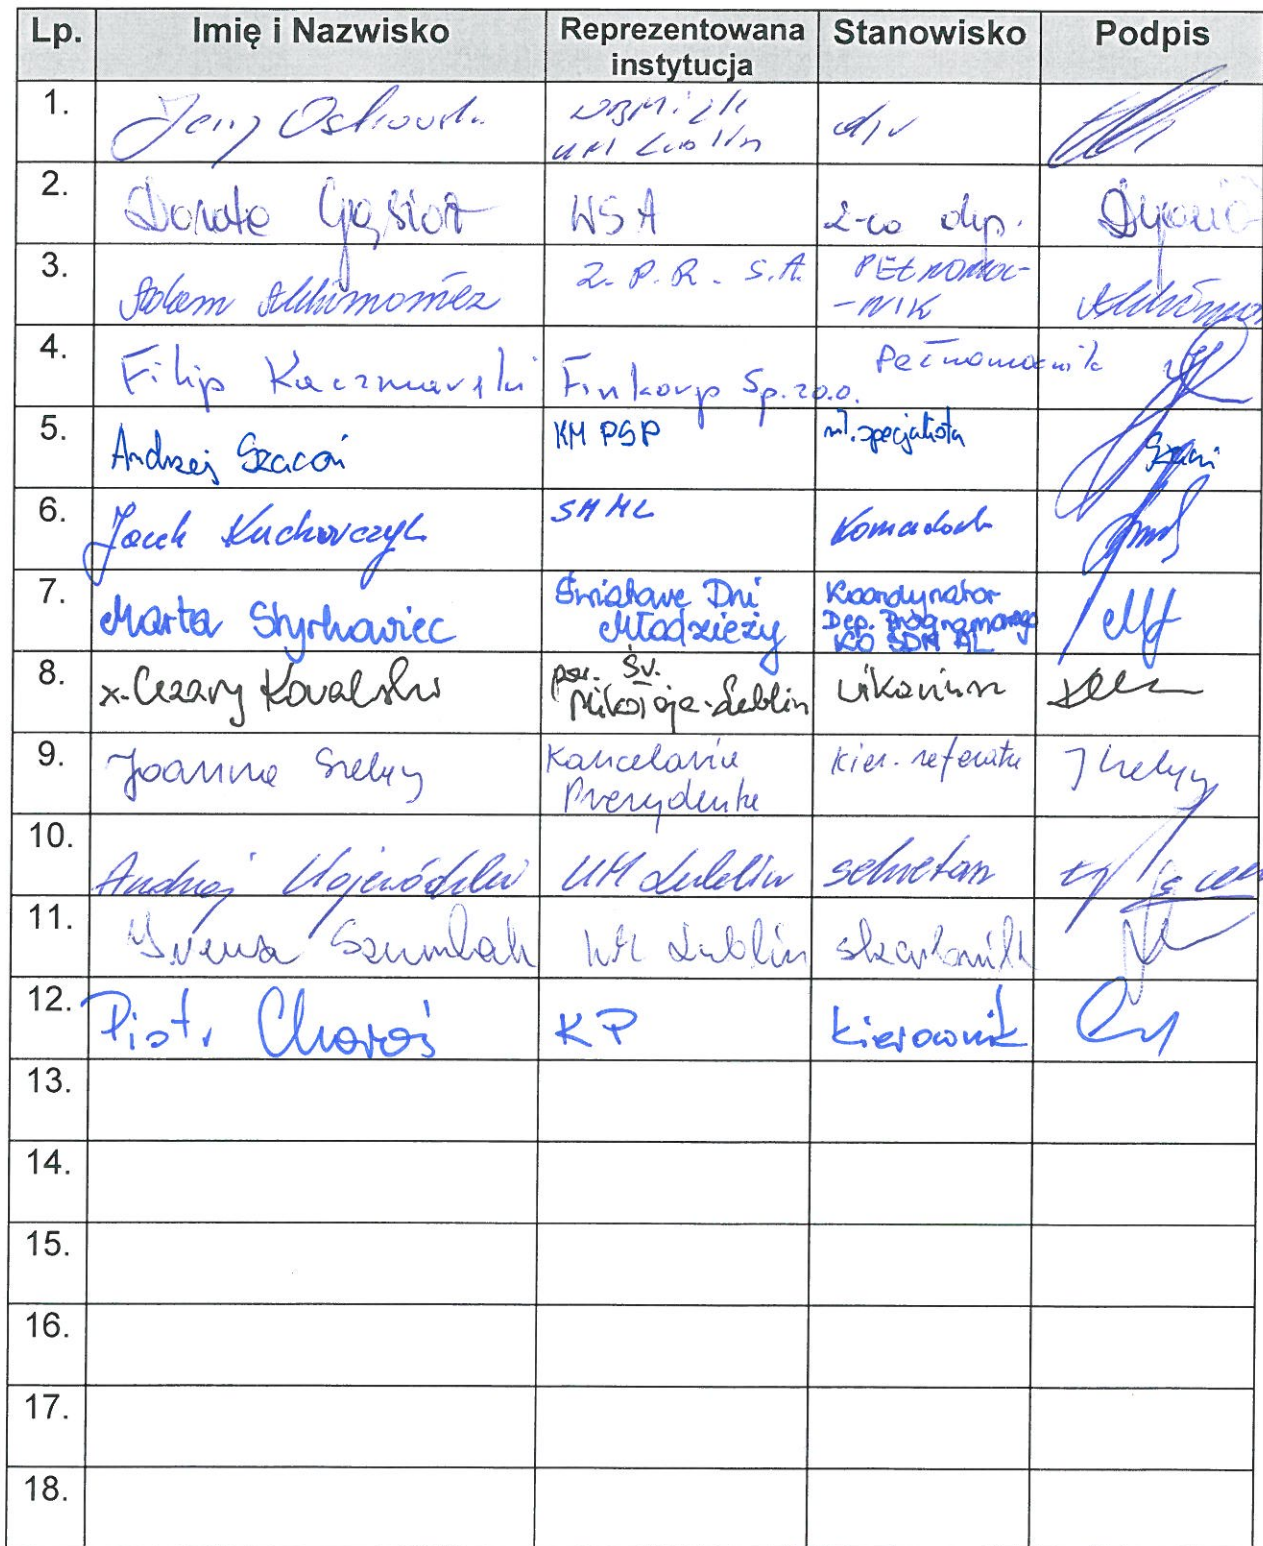 Lp. Imię i Nazwisko Reprezentowana instytucja Stanowisko Podpis
1. Jerzy Ostrowski UM Lublin dyr
2. Dorota Gąsior WSA z-ca dyr.
3. Adam Z.P.R. S.A. PEŁNOMOC-
-NIK
4. Filip Kaczmarski Finkorp Sp. zo.o. Pełnomocnik
5. Andrzej Szacoń KM PSP mł. specjalista
6. Jacek Kucharczyk SMML Komendant
7. Marta Styrkowiec Światowe Dni Młodzieży Koordynator
Dep. Programowego
KO SDM AL
8. x. Cezary Kowalski par. Św. Mikołaja-Lublin wikariusz
9. Joanna Szeląg Kancelaria Prezydenta kier. referatu
10. Andrzej Wojewódzki UM Lublin sekretarz
11. Irena Szumlak UM Lublin skarbnik
12. Piotr Choroś KP kierownik
13.
14.
15.
16.
17.
18.